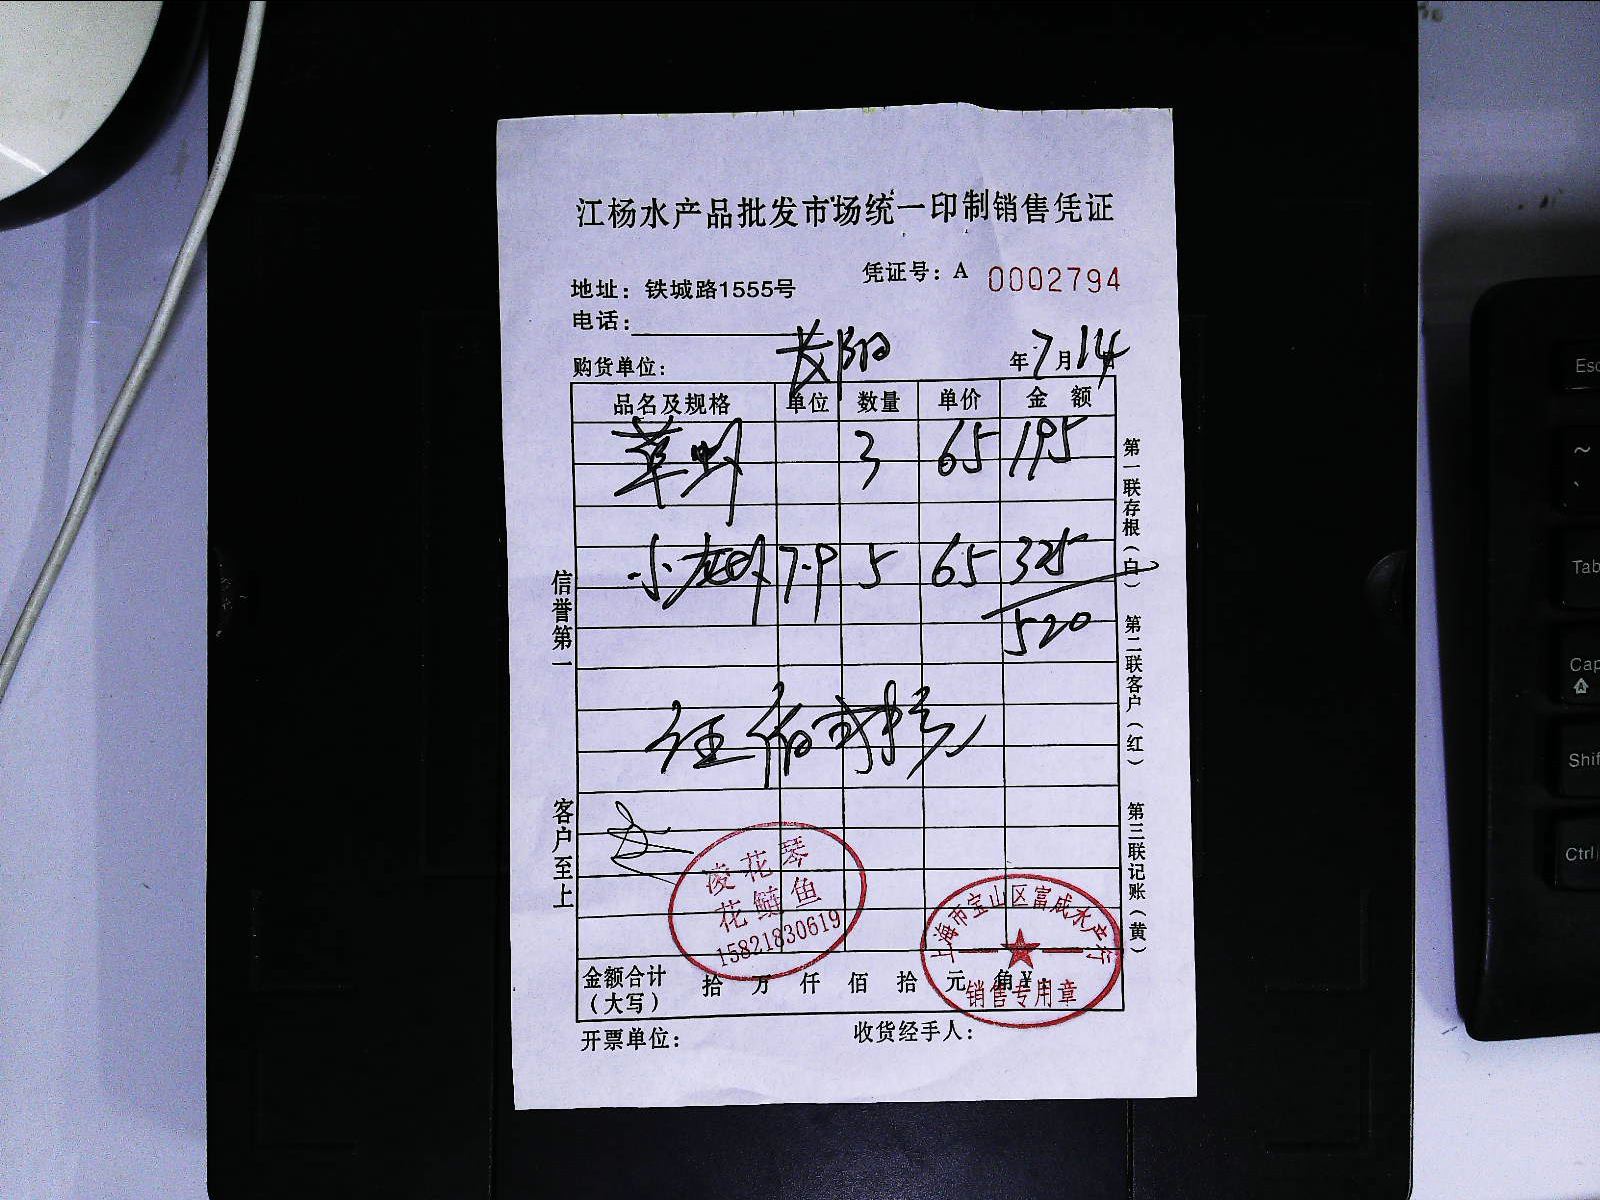 江杨水产品批发市场统一印制销售凭证
凭证号：A 0002794
地址：铁城路1555号
电话：
购货单位： 长阳 年7月14日
品名及规格 单位 数量 单价 金额
草虾 3 65 195
小龙虾 7-9 5 65 325
520
信誉第一
客户至上
第一联存根（白）
第二联客户（红）
第三联记账（黄）
凌花琴
花鲢鱼
15821830619
上海市宝山区富成水产行
销售专用章
金额合计（大写） 拾 万 仟 佰 拾 元 角 ¥：
开票单位： 收货经手人：
Esc
~
`
Tab
Cap
Shif
Ctrl